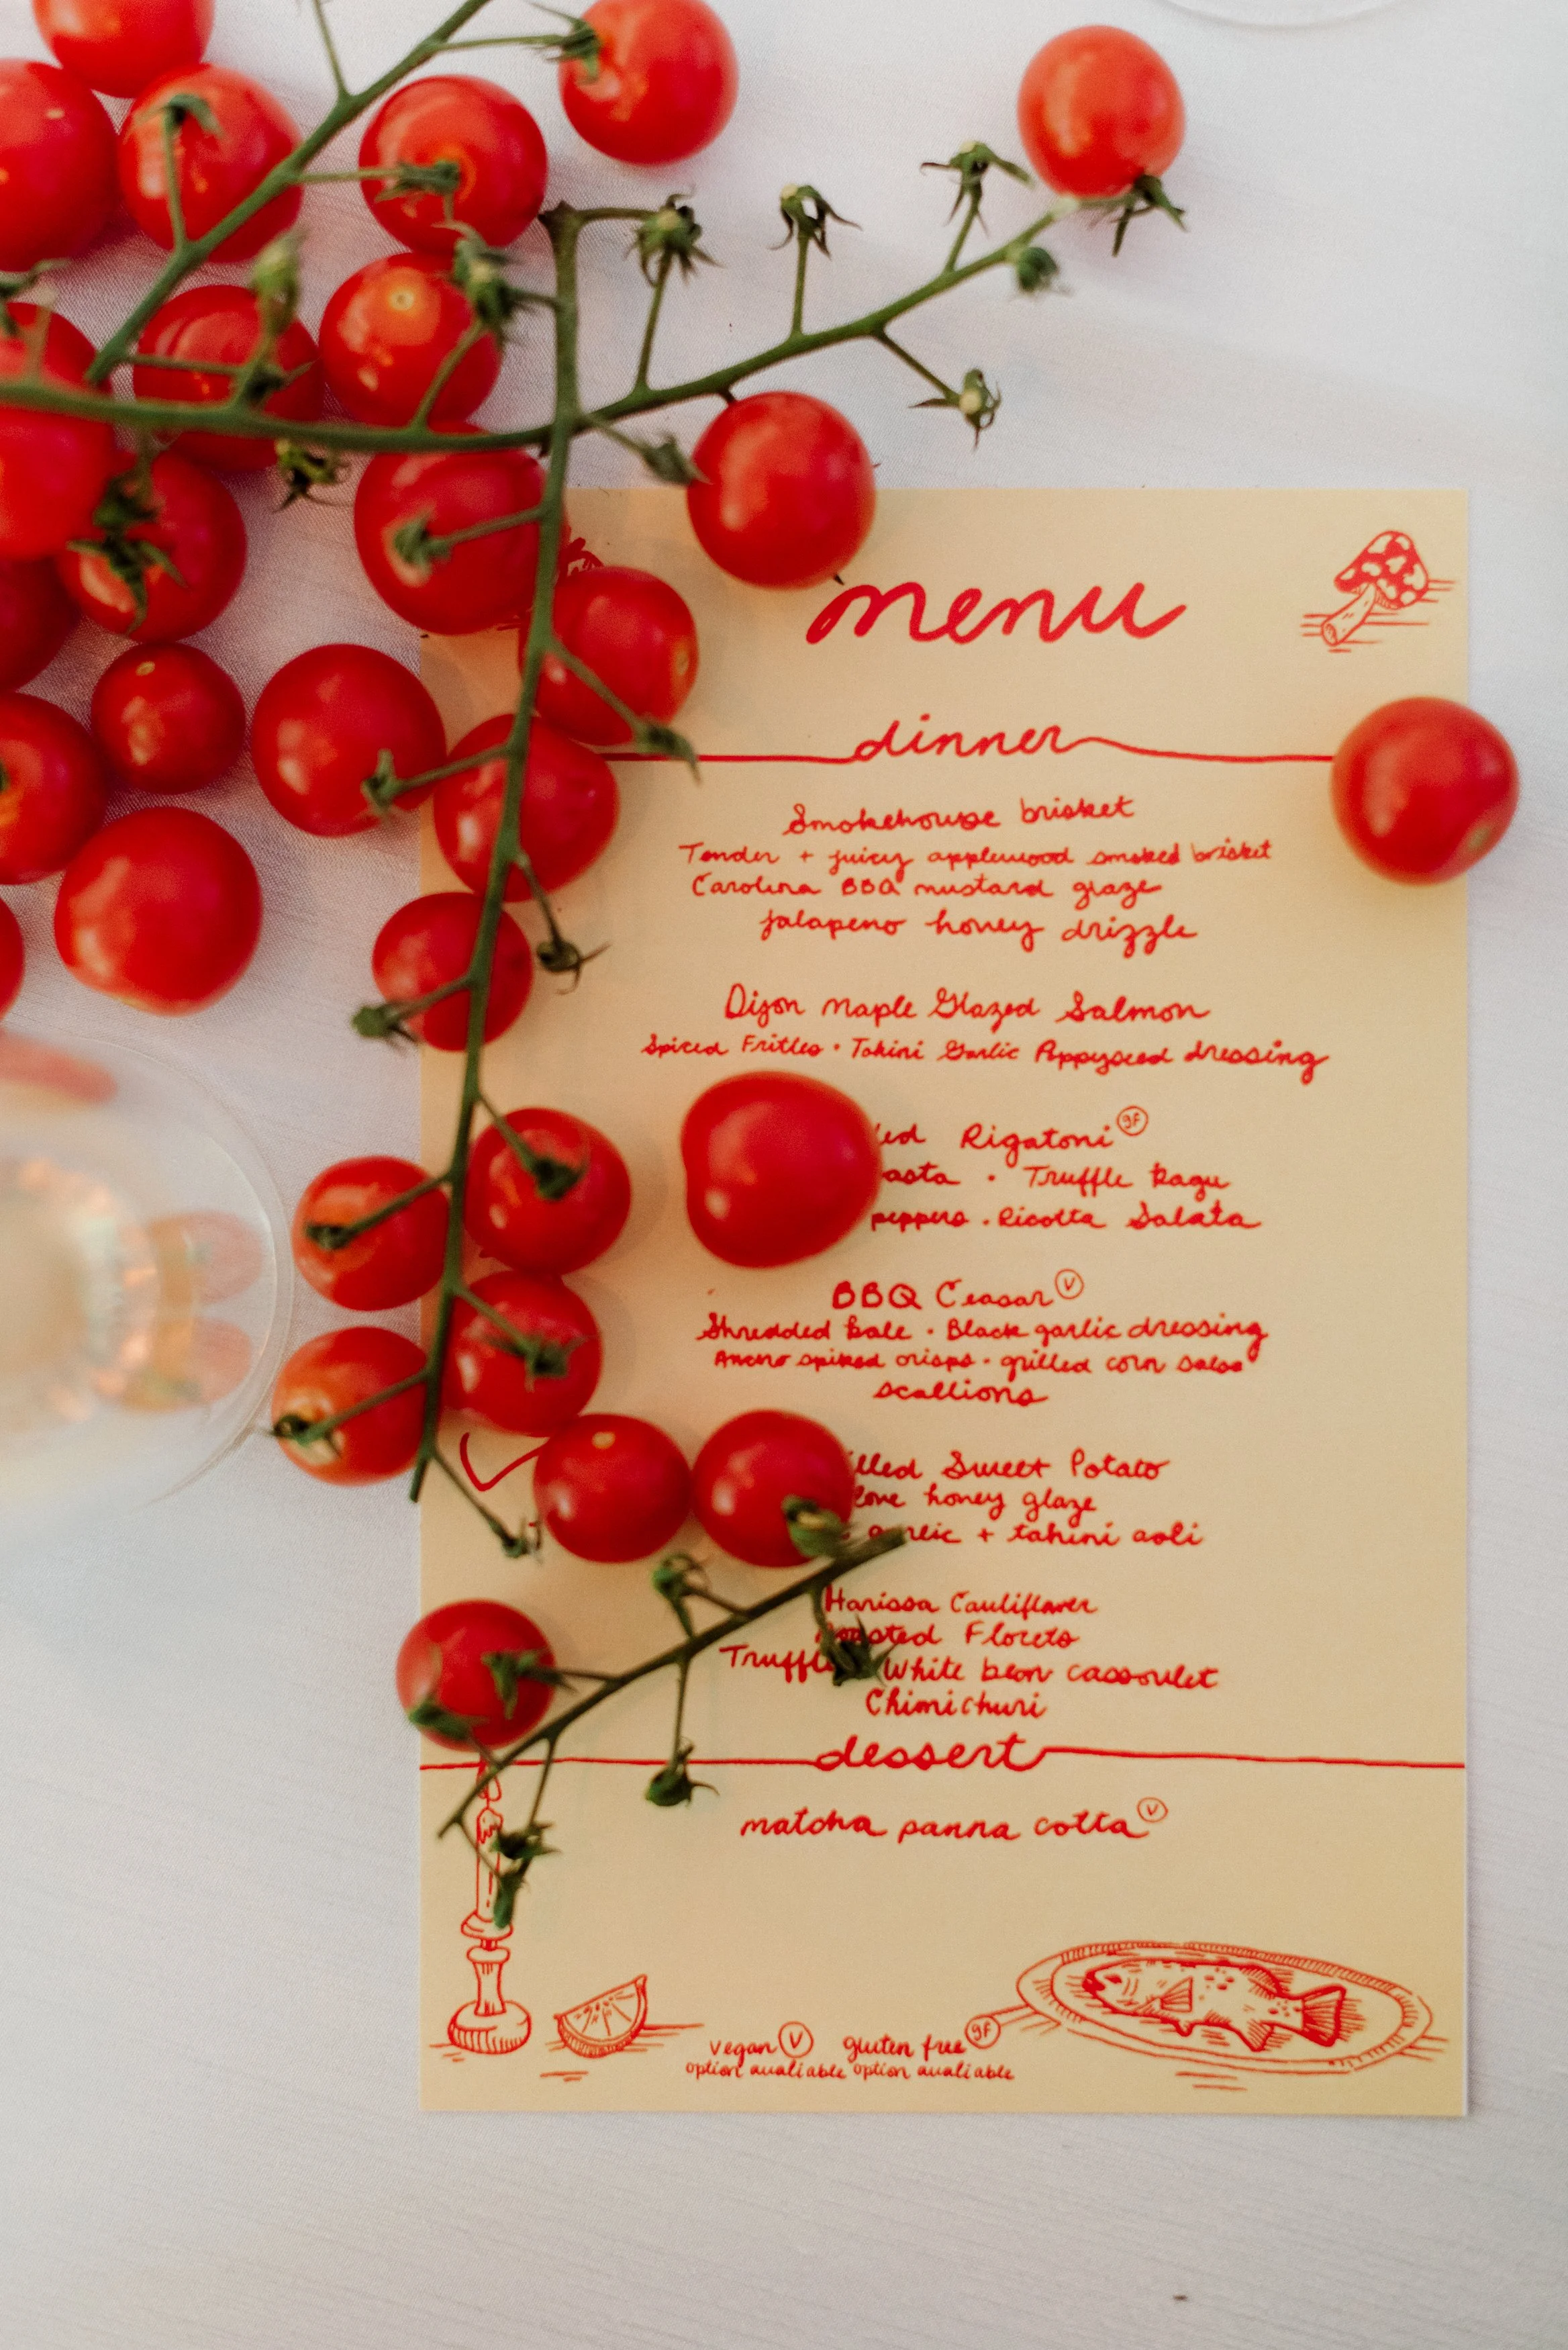 menu
dinner
Smokehouse brisket
Tender + juicy applewood smoked brisket
Carolina BBQ mustard glaze
jalapeno honey drizzle
Dijon Maple Glazed Salmon
Spiced Frittes • Tahini Garlic Poppyseed dressing
Rigatoni gf
• Truffle Ragu
peppers • Ricotta Salata
BBQ Ceasar V
Shredded kale • Black garlic dressing
spiked crisps • grilled corn salsa
scallions
Sweet Potato
honey glaze
garlic + tahini aoli
Harissa Cauliflower
Roasted Florets
Truffle White bean cassoulet
Chimichuri
dessert
matcha panna cotta V
vegan V gluten free gf
option avaliable option avaliable